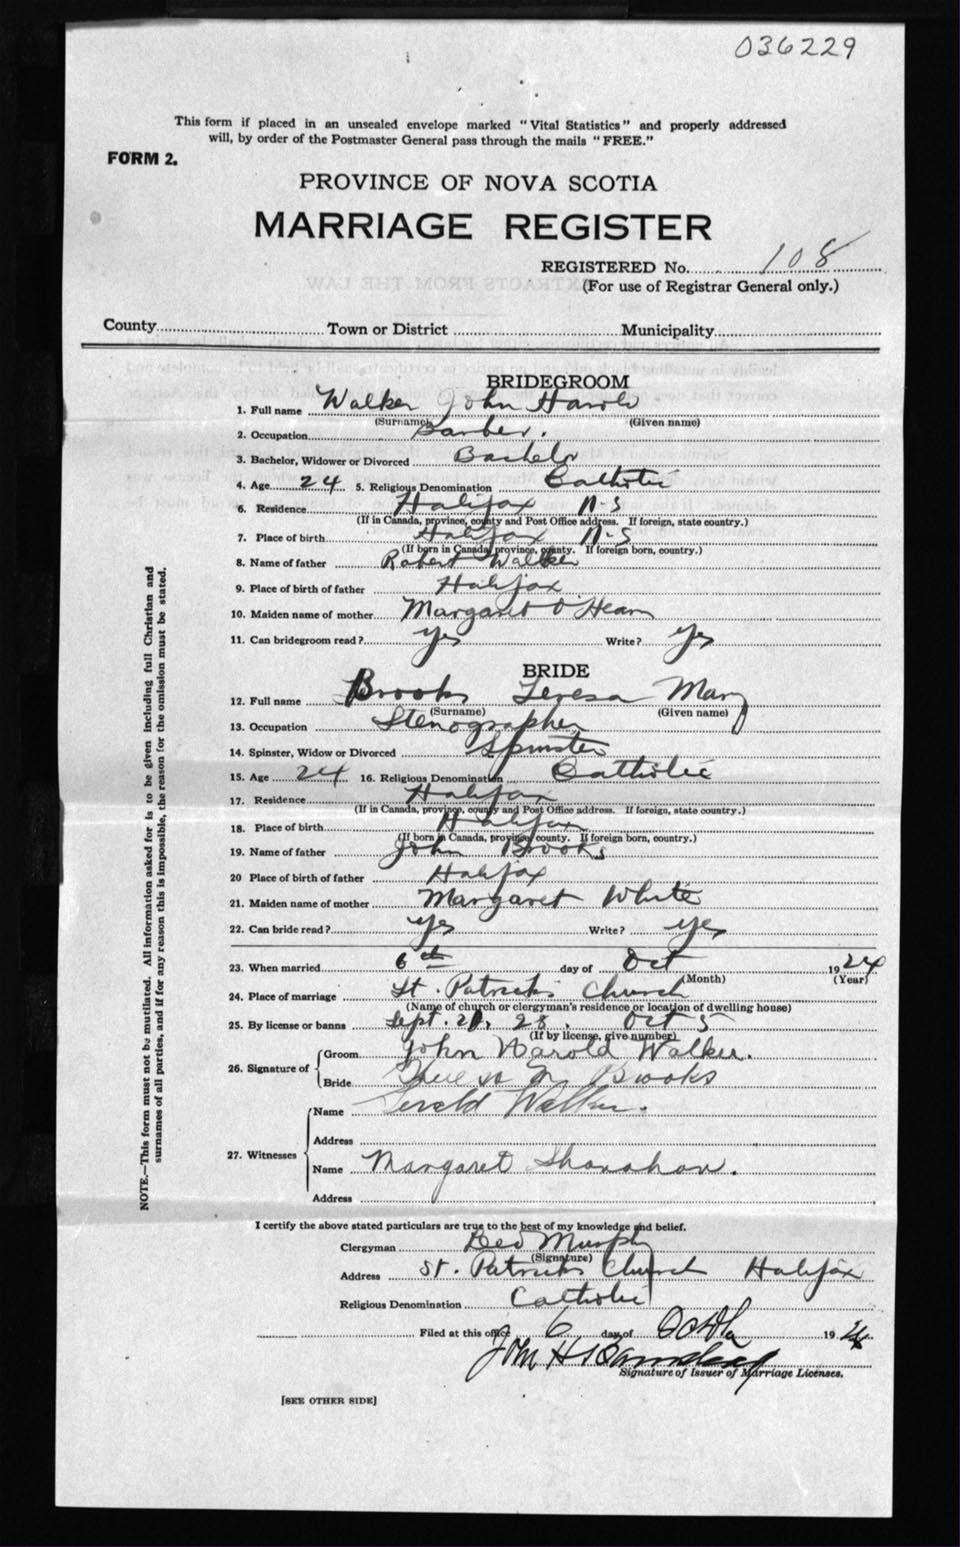 036229
This form if placed in an unsealed envelope marked "Vital Statistics" and properly addressed
will, by order of the Postmaster General pass through the mails "FREE."
FORM 2.
PROVINCE OF NOVA SCOTIA
MARRIAGE REGISTER
REGISTERED No. 108
(For use of Registrar General only.)
County Town or District Municipality
BRIDEGROOM
1. Full name Walker John Harold
(Surname) (Given name)
2. Occupation Barber.
3. Bachelor, Widower or Divorced Bachelor
4. Age 24 5. Religious Denomination Catholic
6. Residence Halifax N-S
(If in Canada, province, county and Post Office address. If foreign, state country.)
7. Place of birth Halifax N-S
(If born in Canada, province, county. If foreign born, country.)
8. Name of father Robert Walker
9. Place of birth of father Halifax
10. Maiden name of mother Margaret O'Hearn
11. Can bridegroom read? yes Write? yes
BRIDE
12. Full name Brooks Teresa Mary
(Surname) (Given name)
13. Occupation Stenographer
14. Spinster, Widow or Divorced Spinster
15. Age 24 16. Religious Denomination Catholic
17. Residence Halifax
(If in Canada, province, county and Post Office address. If foreign, state country.)
18. Place of birth Halifax
(If born in Canada, province, county. If foreign born, country.)
19. Name of father John Brooks
20 Place of birth of father Halifax
21. Maiden name of mother Margaret White
22. Can bride read? yes Write? yes
23. When married 6th day of Oct 1924
(Month) (Year)
24. Place of marriage St. Patricks Church
(Name of church or clergyman's residence or location of dwelling house)
25. By license or banns Sept. 21, 28. Oct 5
(If by license, give number)
26. Signature of Groom John Harold Walker.
Bride Theresa M Brooks
27. Witnesses Name Gerald Walker.
Address
Name Margaret Shanahan.
Address
NOTE.—This form must not be mutilated. All information asked for is to be given including full Christian and
surnames of all parties, and if for any reason this is impossible, the reason for the omission must be stated.
I certify the above stated particulars are true to the best of my knowledge and belief.
Clergyman Geo Murphy
(Signature)
Address St. Patricks Church Halifax
Religious Denomination Catholic
Filed at this office 6 day of 1924.
John H
Signature of Issuer of Marriage Licenses.
[SEE OTHER SIDE]